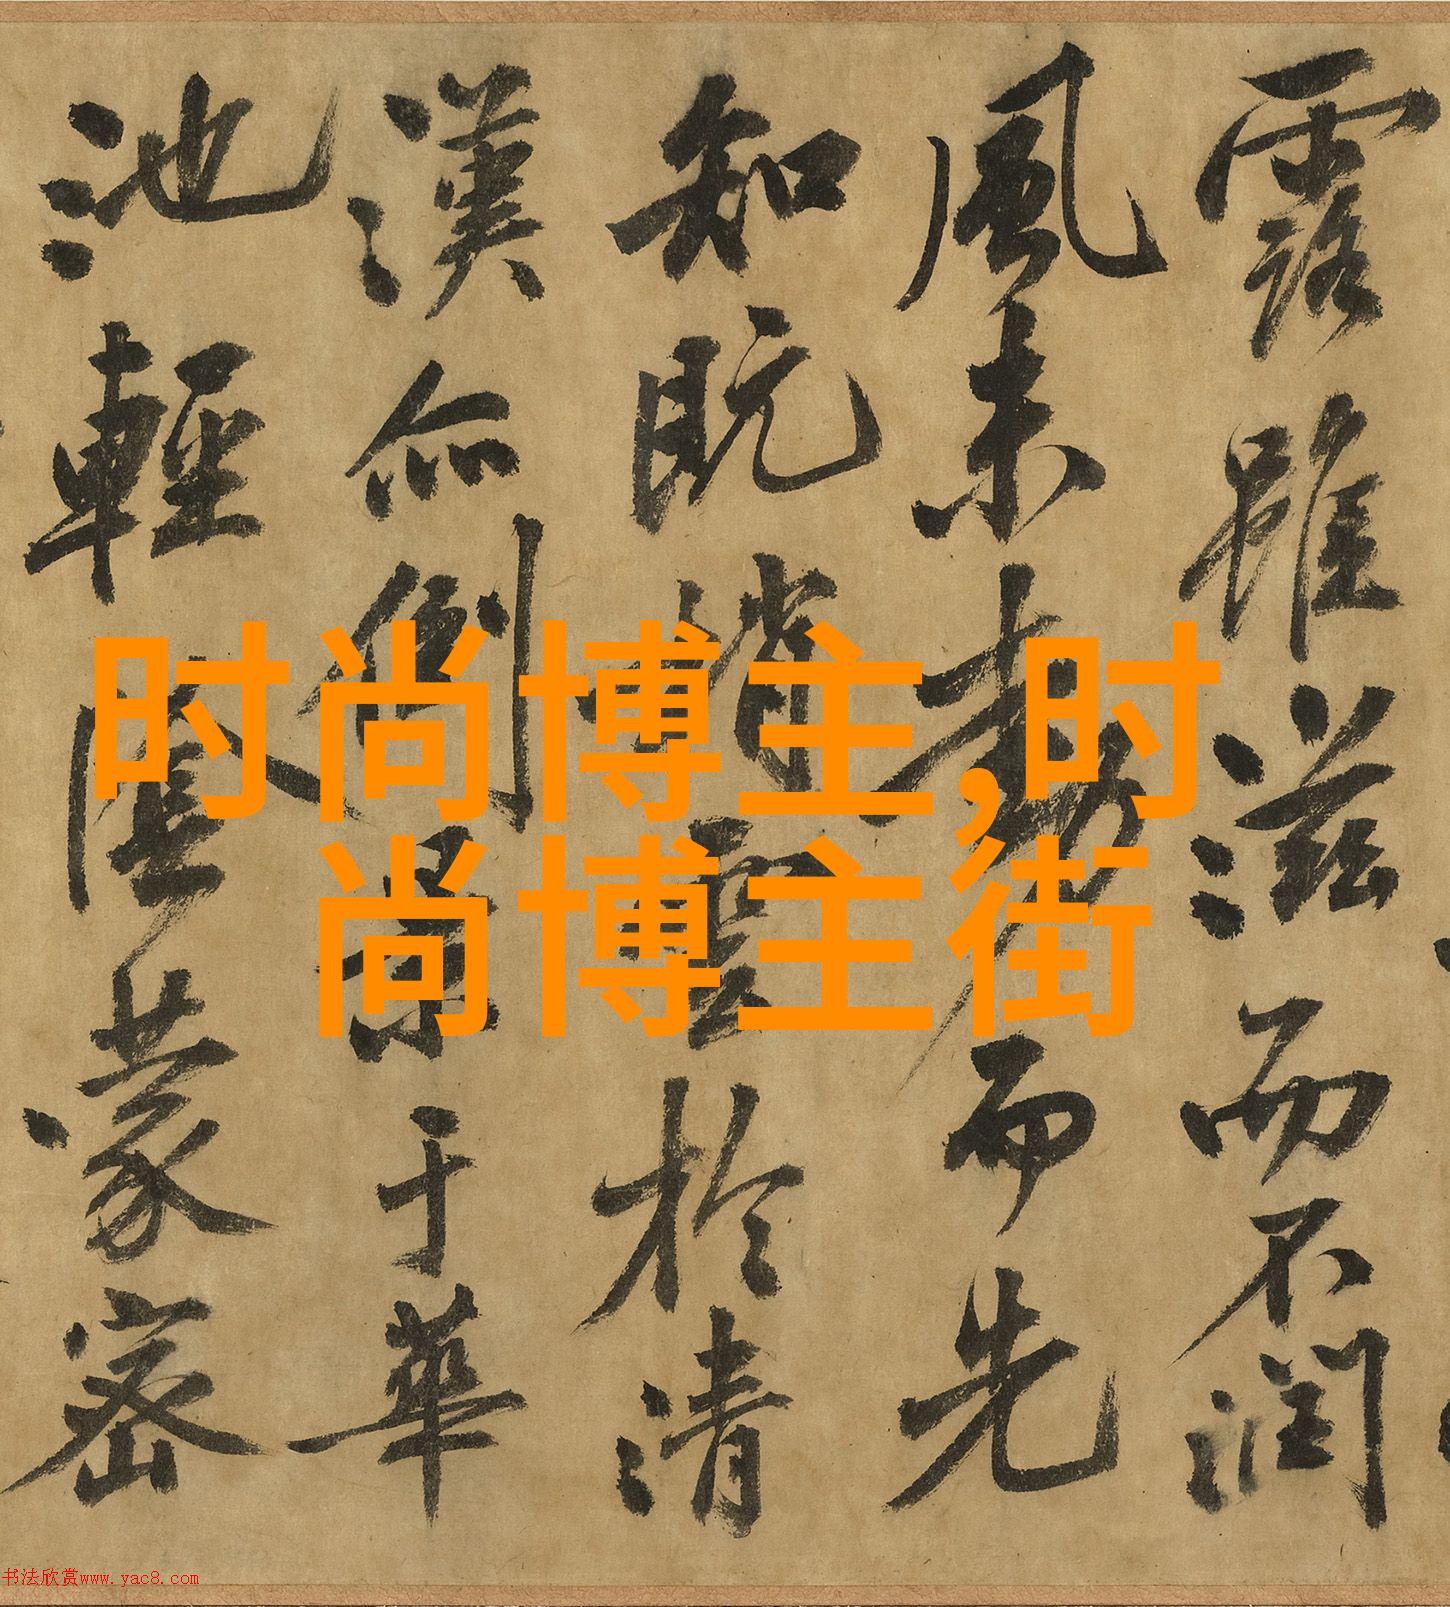 露雖滋而不潤
風未動而先
知既銷雲於清
漢亦倒景于華
池輕陰蒙密
时尚博主,时
尚博主街
书法欣赏www.yac8.com